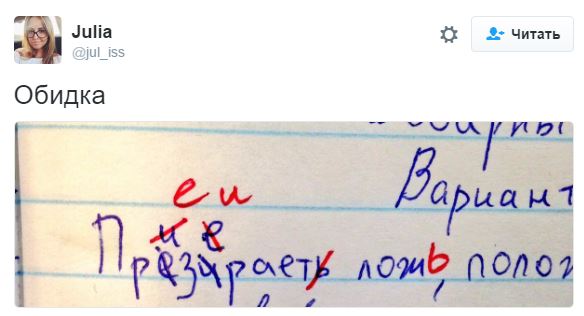 Julia
@jul_iss
Читать
Обидка
Вариант
е и
и е
Презираеть ложь,